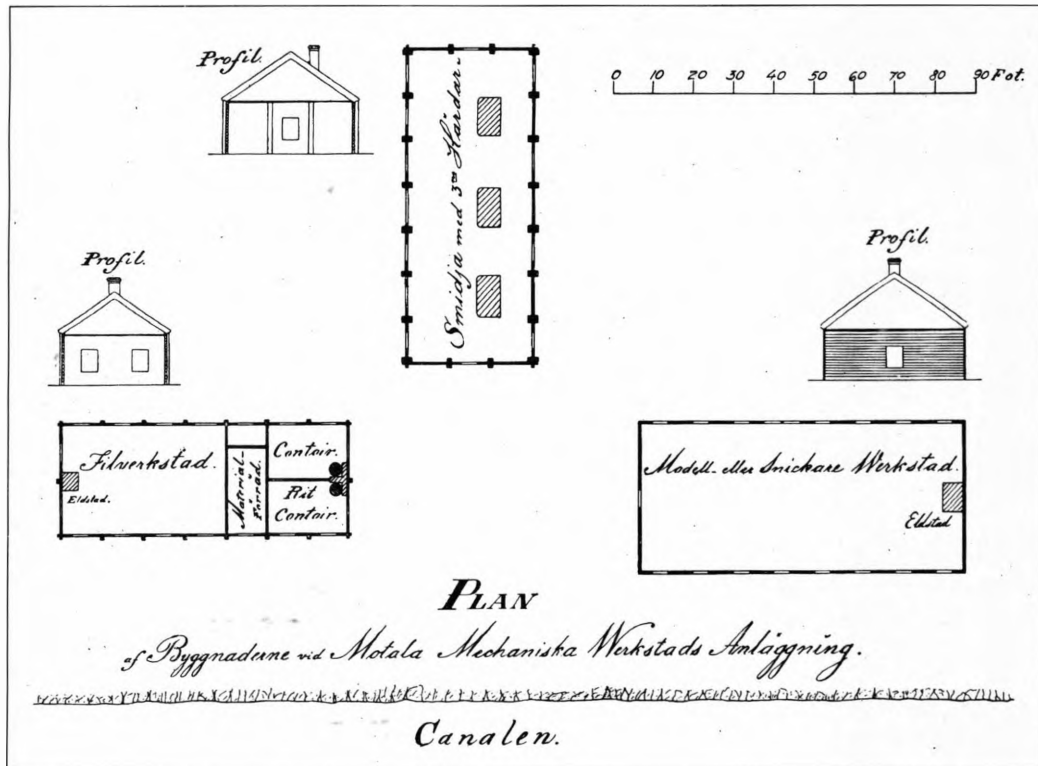 Profil.
Smidja med 3ne Härdar.
0 10 20 30 40 50 60 70 80 90 Fot.
Profil.
Profil.
Filverkstad.
Eldstad.
Material-
Förråd.
Contoir.
Rit
Contoir.
Modell- eller Snickare Werkstad.
Eldstad
PLAN
af Byggnaderne vid Motala Mechaniska Werkstads Anläggning.
Canalen.